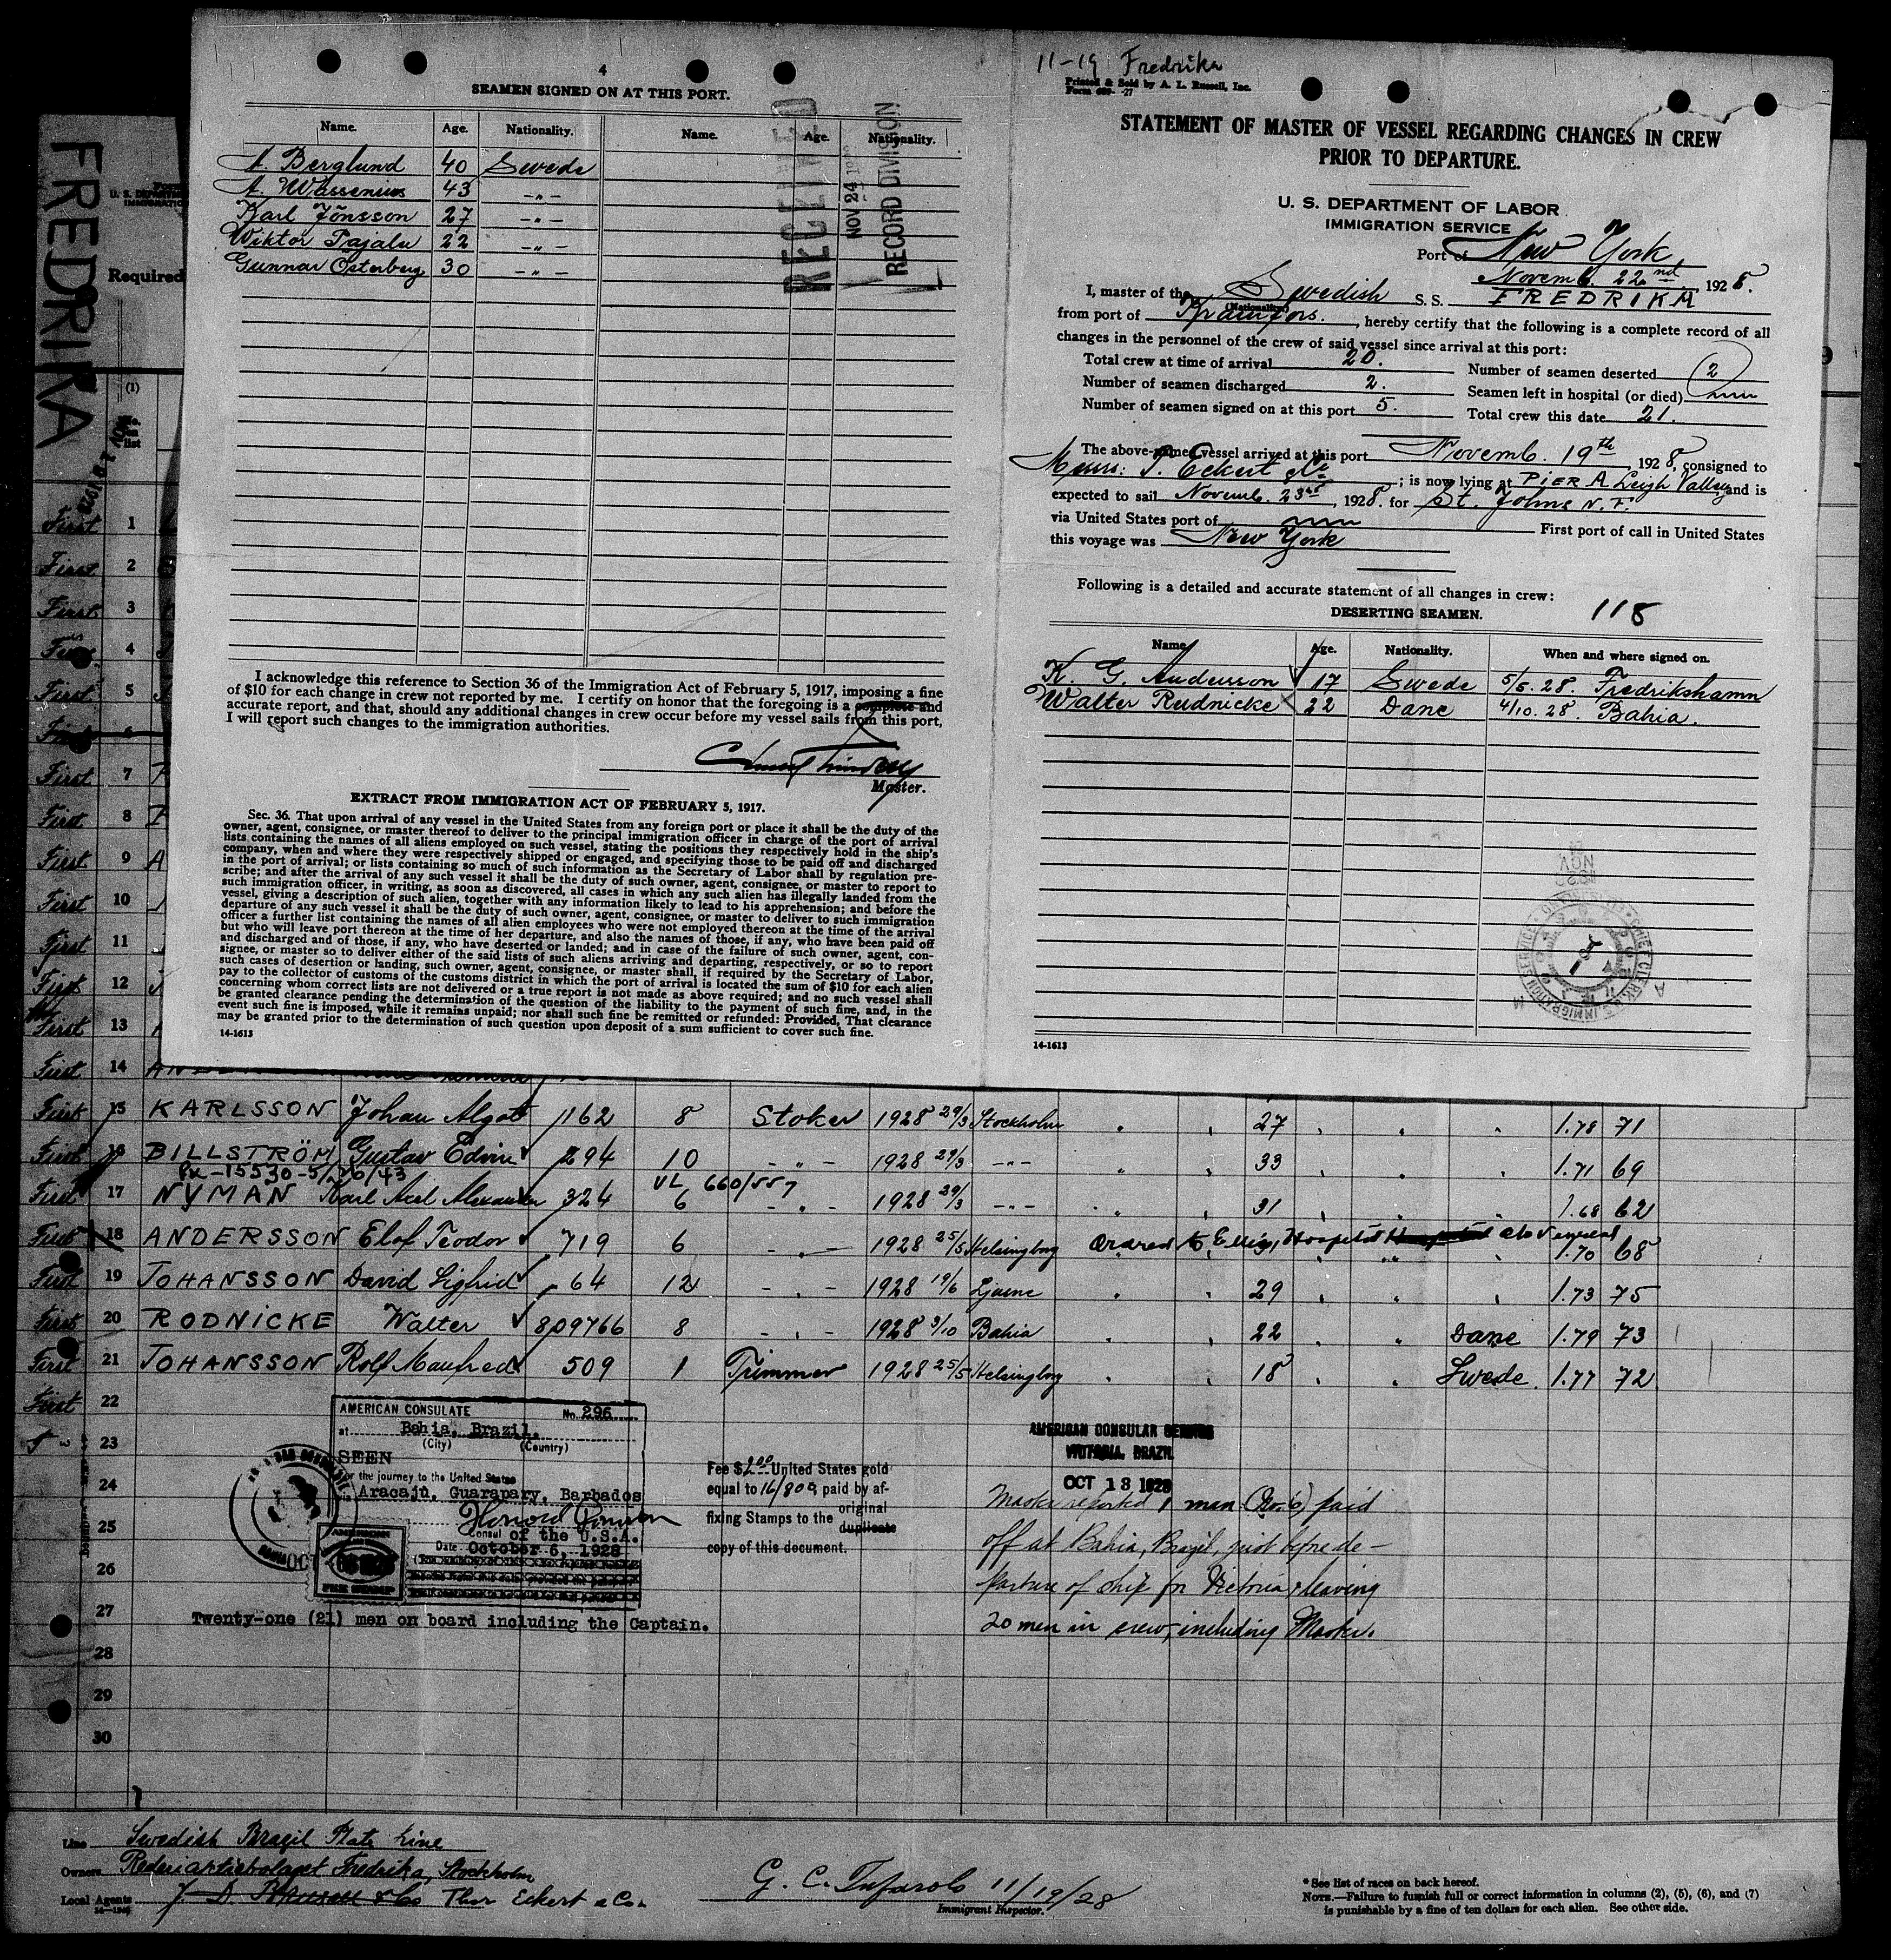 4
SEAMEN SIGNED ON AT THIS PORT.
Name. Age. Nationality. Name. Age. Nationality.
A. Berglund 40 Swede
A. Wassenius 43 -"-
Karl Jönsson 27 -"-
Wiktor Pajalu 22 -"-
Gunnar Österberg 30 -"-
RECEIVED
NOV 24
RECORD DIVISION
I acknowledge this reference to Section 36 of the Immigration Act of February 5, 1917, imposing a fine
of $10 for each change in crew not reported by me. I certify on honor that the foregoing is a complete and
accurate report, and that, should any additional changes in crew occur before my vessel sails from this port,
I will report such changes to the immigration authorities.
Master.
EXTRACT FROM IMMIGRATION ACT OF FEBRUARY 5, 1917.
Sec. 36. That upon arrival of any vessel in the United States from any foreign port or place it shall be the duty of the
owner, agent, consignee, or master thereof to deliver to the principal immigration officer in charge of the port of arrival
lists containing the names of all aliens employed on such vessel, stating the positions they respectively hold in the ship's
company, when and where they were respectively shipped or engaged, and specifying those to be paid off and discharged
in the port of arrival; or lists containing so much of such information as the Secretary of Labor shall by regulation pre-
scribe; and after the arrival of any such vessel it shall be the duty of such owner, agent, consignee, or master to report to
such immigration officer, in writing, as soon as discovered, all cases in which any such alien has illegally landed from the
vessel, giving a description of such alien, together with any information likely to lead to his apprehension; and before the
departure of any such vessel it shall be the duty of such owner, agent, consignee, or master to deliver to such immigration
officer a further list containing the names of all alien employees who were not employed thereon at the time of the arrival
but who will leave port thereon at the time of her departure, and also the names of those, if any, who have been paid off
and discharged and of those, if any, who have deserted or landed; and in case of the failure of such owner, agent, con-
signee, or master so to deliver either of the said lists of such aliens arriving and departing, respectively, or so to report
such cases of desertion or landing, such owner, agent, consignee, or master shall, if required by the Secretary of Labor,
pay to the collector of customs of the customs district in which the port of arrival is located the sum of $10 for each alien
concerning whom correct lists are not delivered or a true report is not made as above required; and no such vessel shall
be granted clearance pending the determination of the question of the liability to the payment of such fine, and, in the
event such fine is imposed, while it remains unpaid; nor shall such fine be remitted or refunded: Provided, That clearance
may be granted prior to the determination of such question upon deposit of a sum sufficient to cover such fine.
14-1613
11-19 Fredrika
Printed & Sold by A. L. Russell, Inc.
STATEMENT OF MASTER OF VESSEL REGARDING CHANGES IN CREW
PRIOR TO DEPARTURE.
U. S. DEPARTMENT OF LABOR
IMMIGRATION SERVICE
Port of New York,
Novemb. 22nd, 1928.
I, master of the Swedish S. S. FREDRIKA
(Nationality)
from port of Kramfors., hereby certify that the following is a complete record of all
changes in the personnel of the crew of said vessel since arrival at this port:
Total crew at time of arrival 20. Number of seamen deserted 2
Number of seamen discharged 2. Seamen left in hospital (or died)
Number of seamen signed on at this port 5. Total crew this date 21.
The above-named vessel arrived at this port Novemb. 19th, 1928, consigned to
Messrs: T. Eckert & Co; is now lying at PIER A Leigh Valley and is
expected to sail Novemb. 23rd, 1928. for St. Johns N. F.
via United States port of First port of call in United States
this voyage was New York
Following is a detailed and accurate statement of all changes in crew:
DESERTING SEAMEN. 118
Name Age. Nationality. When and where signed on.
K. G. Andersson 17 Swede 5/5. 28. Fredrikshamn
Walter Rudnicke 22 Dane 4/10. 28. Bahia.
14-1613
FREDRIKA
Required
(1)
No. on list
First 1
First 2
First 3
First 4
First 5
First 6
First 7
First 8
First 9 A
First 10
First 11
First 12
First 13
First 14
First 15 KARLSSON Johan Algot 1162 8 Stoker 1928 29/3 Stockholm 27 1.78 71
First 16 BILLSTRÖM Gustav Edvin 294 10 -"- 1928 29/3 -"- 33 1.71 69
15530-5/26/43 VL 660/557
First 17 NYMAN Karl Axel Alexander 324 6 -"- 1928 29/3 -"- 31 1.68 62
First 18 ANDERSSON Elof Teodor 719 6 -"- 1928 25/5 Helsingborg 1.70 68
First 19 JOHANSSON David Sigfrid 64 12 -"- 1928 19/6 Ljusne 29 1.73 75
First 20 RODNICKE Walter 809766 8 -"- 1928 3/10 Bahia 22 Dane 1.79 73
First 21 JOHANSSON Rolf Manfred 509 1 Trimmer 1928 25/5 Helsingborg 18 Swede. 1.77 72
First 22
23
24
25
26
27
28
29
30
AMERICAN CONSULATE No. 296
at Bahia, Brazil.
(City) (Country)
SEEN
for the journey to the United States
via Aracajú, Guarapary, Barbados
Consul of the U.S.A.
Date October 6, 1928
Twenty-one (21) men on board including the Captain.
Fee $2.00 United States gold
equal to 16/809 paid by af-
fixing Stamps to the original
duplicate
copy of this document.
AMERICAN CONSULAR SERVICE
VICTORIA, BRAZIL
OCT 13 1928
Master reported 1 man (No. 6) paid
off at Bahia, Brazil, just before de-
parture of ship for Victoria, leaving
20 men in crew, including Master.
Line Swedish Brazil Plate Line
Owners Rederiaktiebolaget Fredrika, Stockholm
Local Agents Thor Eckert & Co.
G. C. Tufarolo 11/19/28
Immigrant Inspector.
* See list of races on back hereof.
NOTE.—Failure to furnish full or correct information in columns (2), (5), (6), and (7)
is punishable by a fine of ten dollars for each alien. See other side.